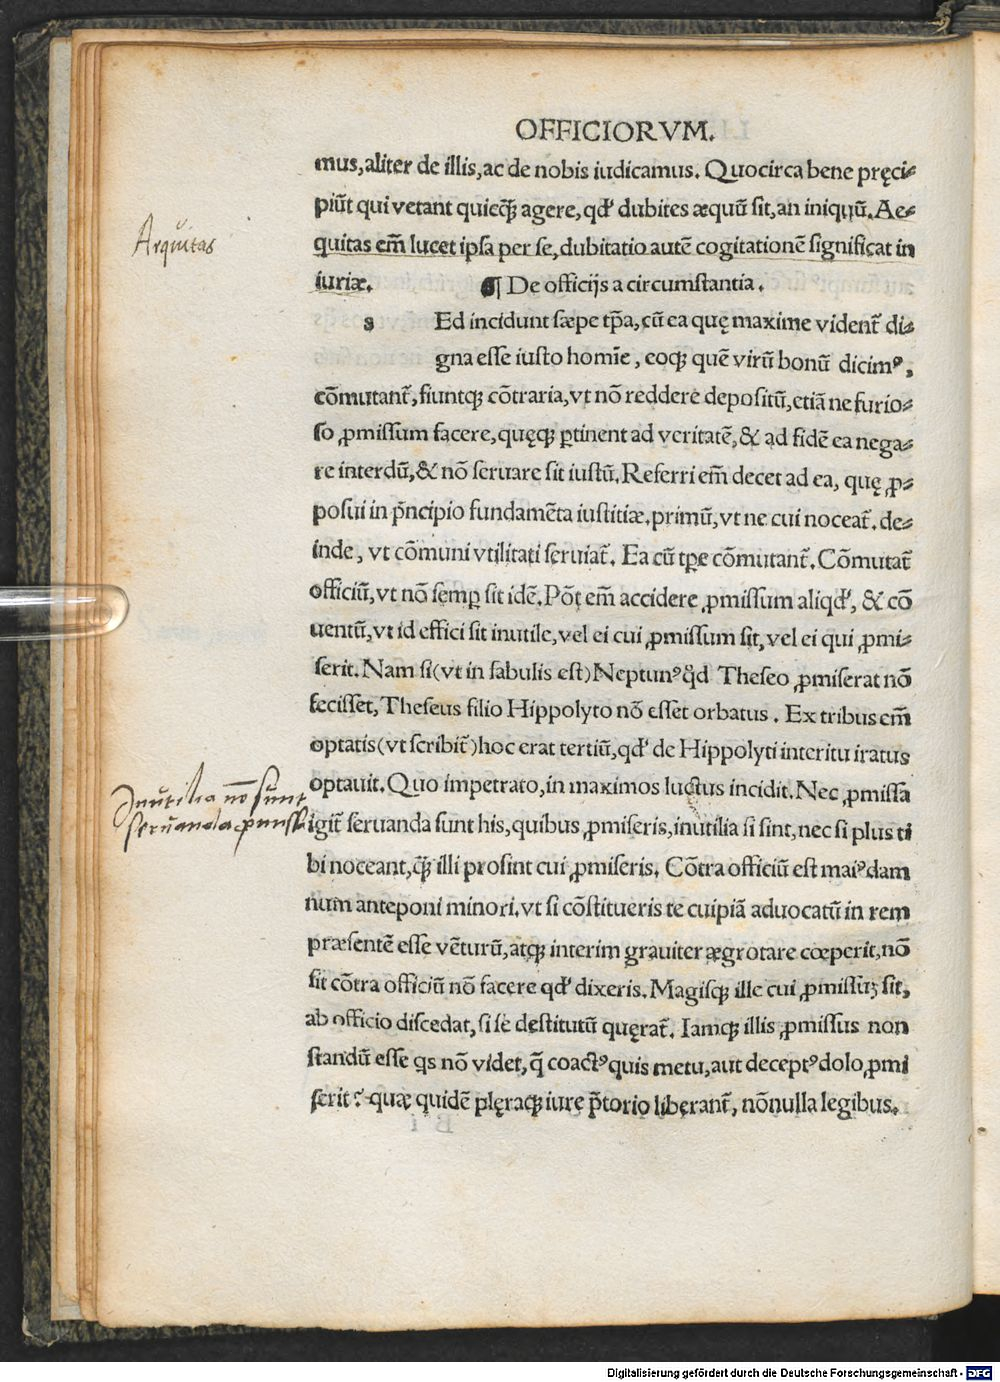 OFFICIORVM.
mus,aliter de illis,ac de nobis iudicamus. Quocirca bene pręci⸗
piūt qui vetant quicq̃ agere, qd' dubites æquū sit, an iniquū. Ae⸗
quitas em̄ lucet ipsa per se, dubitatio autē cogitationē significat in
iuriæ. ¶ De officijs a circumstantia.
s Ed incidunt sæpe tp̄a, cū ea quę maxime vident᷑ di⸗
gna esse iusto homīe, eoqꝫ quē virū bonū dicimꝰ,
cōmutant᷑, fiuntqꝫ cōtraria, vt nō reddere depositū, etiā ne furio⸗
so ꝓmissum facere, quęqꝫ ꝑtinent ad veritatē, & ad fidē ea nega⸗
re interdū, & nō seruare sit iustū. Referri em̄ decet ad ea, quę ꝓ⸗
posui in p̄ncipio fundamēta iustitiæ. primū, vt ne cui noceat᷑. de⸗
inde, vt cōmuni vtilitati seruiat᷑. Ea cū tꝑe cōmutant᷑. Cōmutat᷑
officiū, vt nō semꝑ sit idē. Pōt em̄ accidere ꝓmissum aliqd', & cō
uentū, vt id effici sit inutile, vel ei cui ꝓmissum sit, vel ei qui ꝓmi⸗
serit. Nam si (vt in fabulis est) Neptunꝰ qd̄ Theseo ꝓmiserat nō
fecisset, Theseus filio Hippolyto nō esset orbatus. Ex tribus em̄
optatis (vt scribit᷑) hoc erat tertiū, qd' de Hippolyti interitu iratus
optauit. Quo impetrato, in maximos luctus incidit. Nec ꝓmissa
igit᷑ seruanda sunt his, quibus ꝓmiseris, inutilia si sint, nec si plus ti
bi noceant, q̃ illi prosint cui ꝓmiseris. Cōtra officiū est maiꝰ dam
num anteponi minori. vt si cōstitueris te cuipiā aduocatū in rem
præsentē esse vēturū, atqꝫ interim grauiter ægrotare cœperit, nō
sit cōtra officiū nō facere qd' dixeris. Magisqꝫ ille cui ꝓmissuꝫ sit,
ab officio discedat, si se destitutū quęrat᷑. Iamqꝫ illis ꝓmissus non
standū esse qs nō videt, q̄ coactꝰ quis metu, aut deceptꝰ dolo ꝓmi
serit? quæ quidē plęraqꝫ iure p̄torio liberant᷑, nōnulla legibus.
Aequitas
Inutilia nō sunt
seruanda promissa
Digitalisierung gefördert durch die Deutsche Forschungsgemeinschaft - DFG